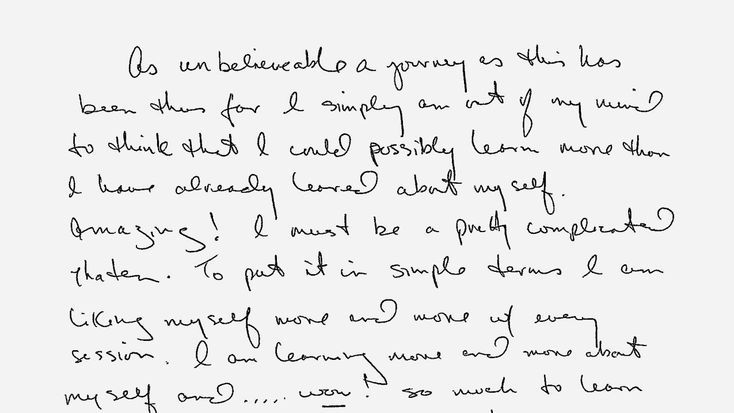 As unbelieveable a journey as this has
been thus far I simply am out of my mind
to think that I could possibly learn more than
I have already leared about myself.
Amazing! I must be a pretty complicated
. To put it in simple terms I am
liking myself more and more w/ every
session. I am learning more and more about
myself and..... wow! so much to learn